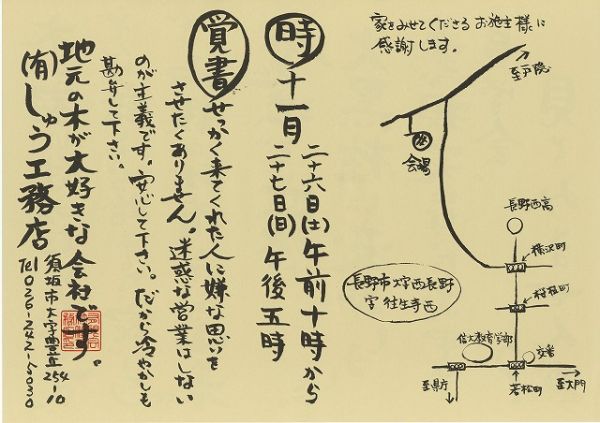 家をみせてくださる お施主様に
感謝します。
時
十一月
二十六日(土)午前十時から
二十七日(日)午後五時
覚書
せっかく来てくれた人に嫌な思いを
させたくありません。迷惑な営業はしない
のが主義です。安心して下さい。だから冷やかしも
勘弁して下さい。
地元の木が大好きな会社です。
(有)しゅう工務店
須坂市大字豊丘254-10
Tel 026-242-5030
至戸隠
会場
長野西高
横沢町
桜枝町
長野市大字西長野
字往生寺西
信大教育学部
交番
至県庁
若松町
至大門